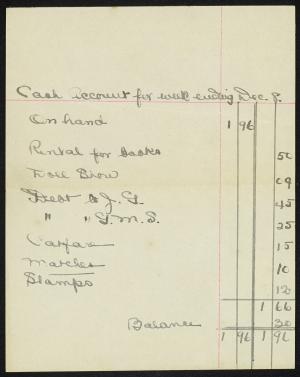 Cash account for week ending Dec. 8.
On hand 1 96
Rental for books 50
09
Debt to J. G. 45
" " G. M. S. 25
Carfare 15
Matches 10
Stamps 12
1 66
Balance 30
1 96 1 96